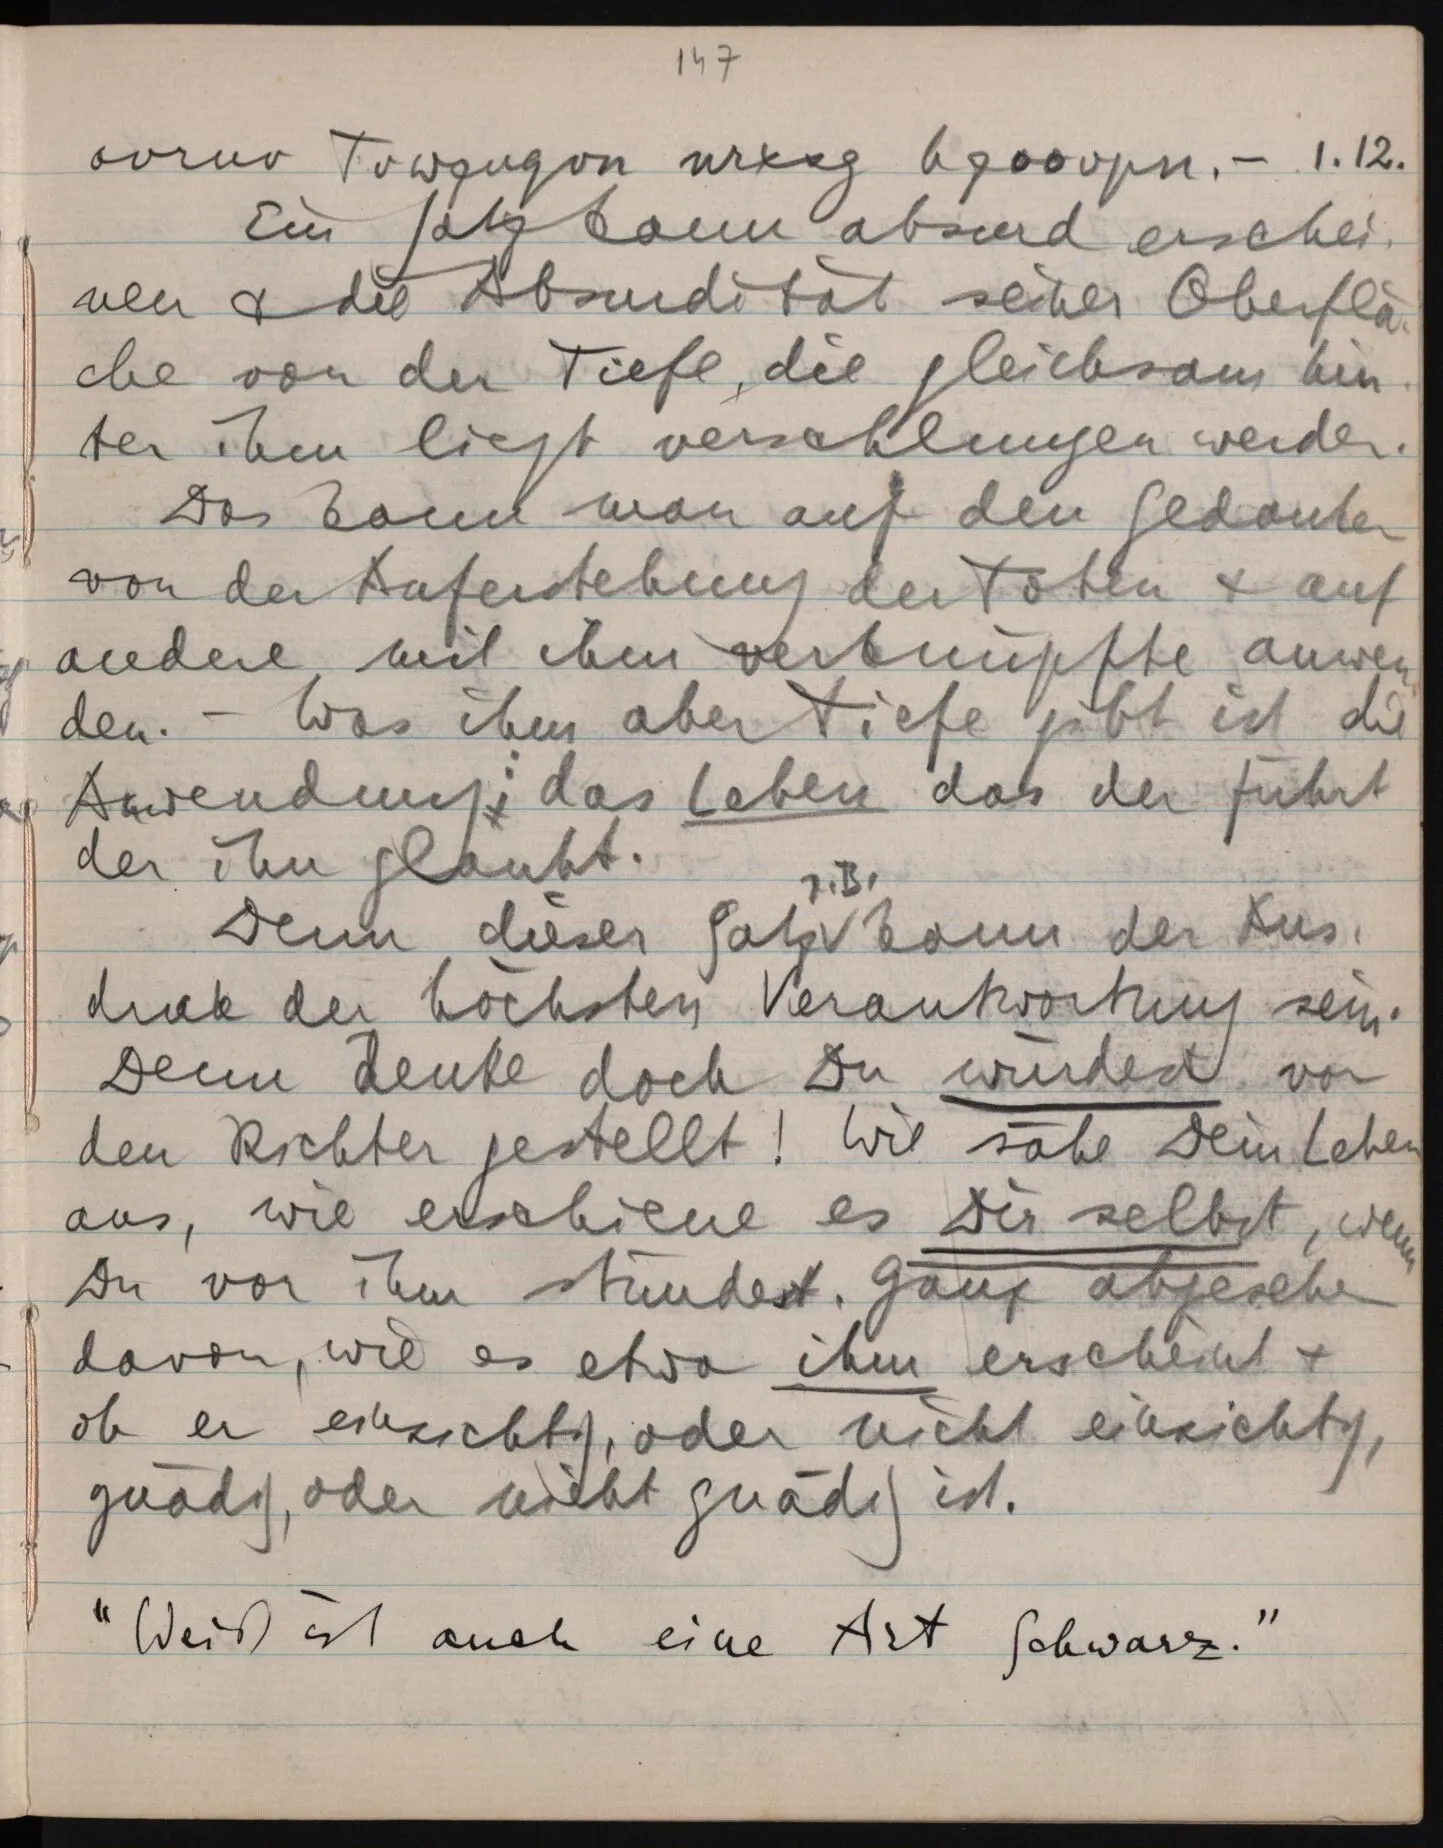 147
ovruv Tvwgugvn urxxg hgoovpn. – 1.12.
Ein Satz kann absurd erschei-
nen & die Absurdität seiner Oberflä-
che von der Tiefe, die gleichsam hin-
ter ihm liegt verschlungen werden.
Das kann man auf den Gedanken
von der Auferstehung der Toten & auf
andere mit ihm verknüpfte anwen-
den. – Was ihm aber Tiefe gibt ist die
Anwendung: das Leben das der führt
der ihn glaubt.
z.B.
Denn dieser Satz kann der Aus-
druck der höchsten Verantwortung sein.
Denn denke doch Du würdest vor
den Richter gestellt! Wie sähe Dein Leben
aus, wie erschiene es Dir selbst, wenn
Du vor ihm stündest. Ganz abgesehen
davon, wie es etwa ihm erscheint &
ob er einsichtig, oder nicht einsichtig,
gnädig, oder nicht gnädig ist.
"Weiß ist auch eine Art Schwarz."